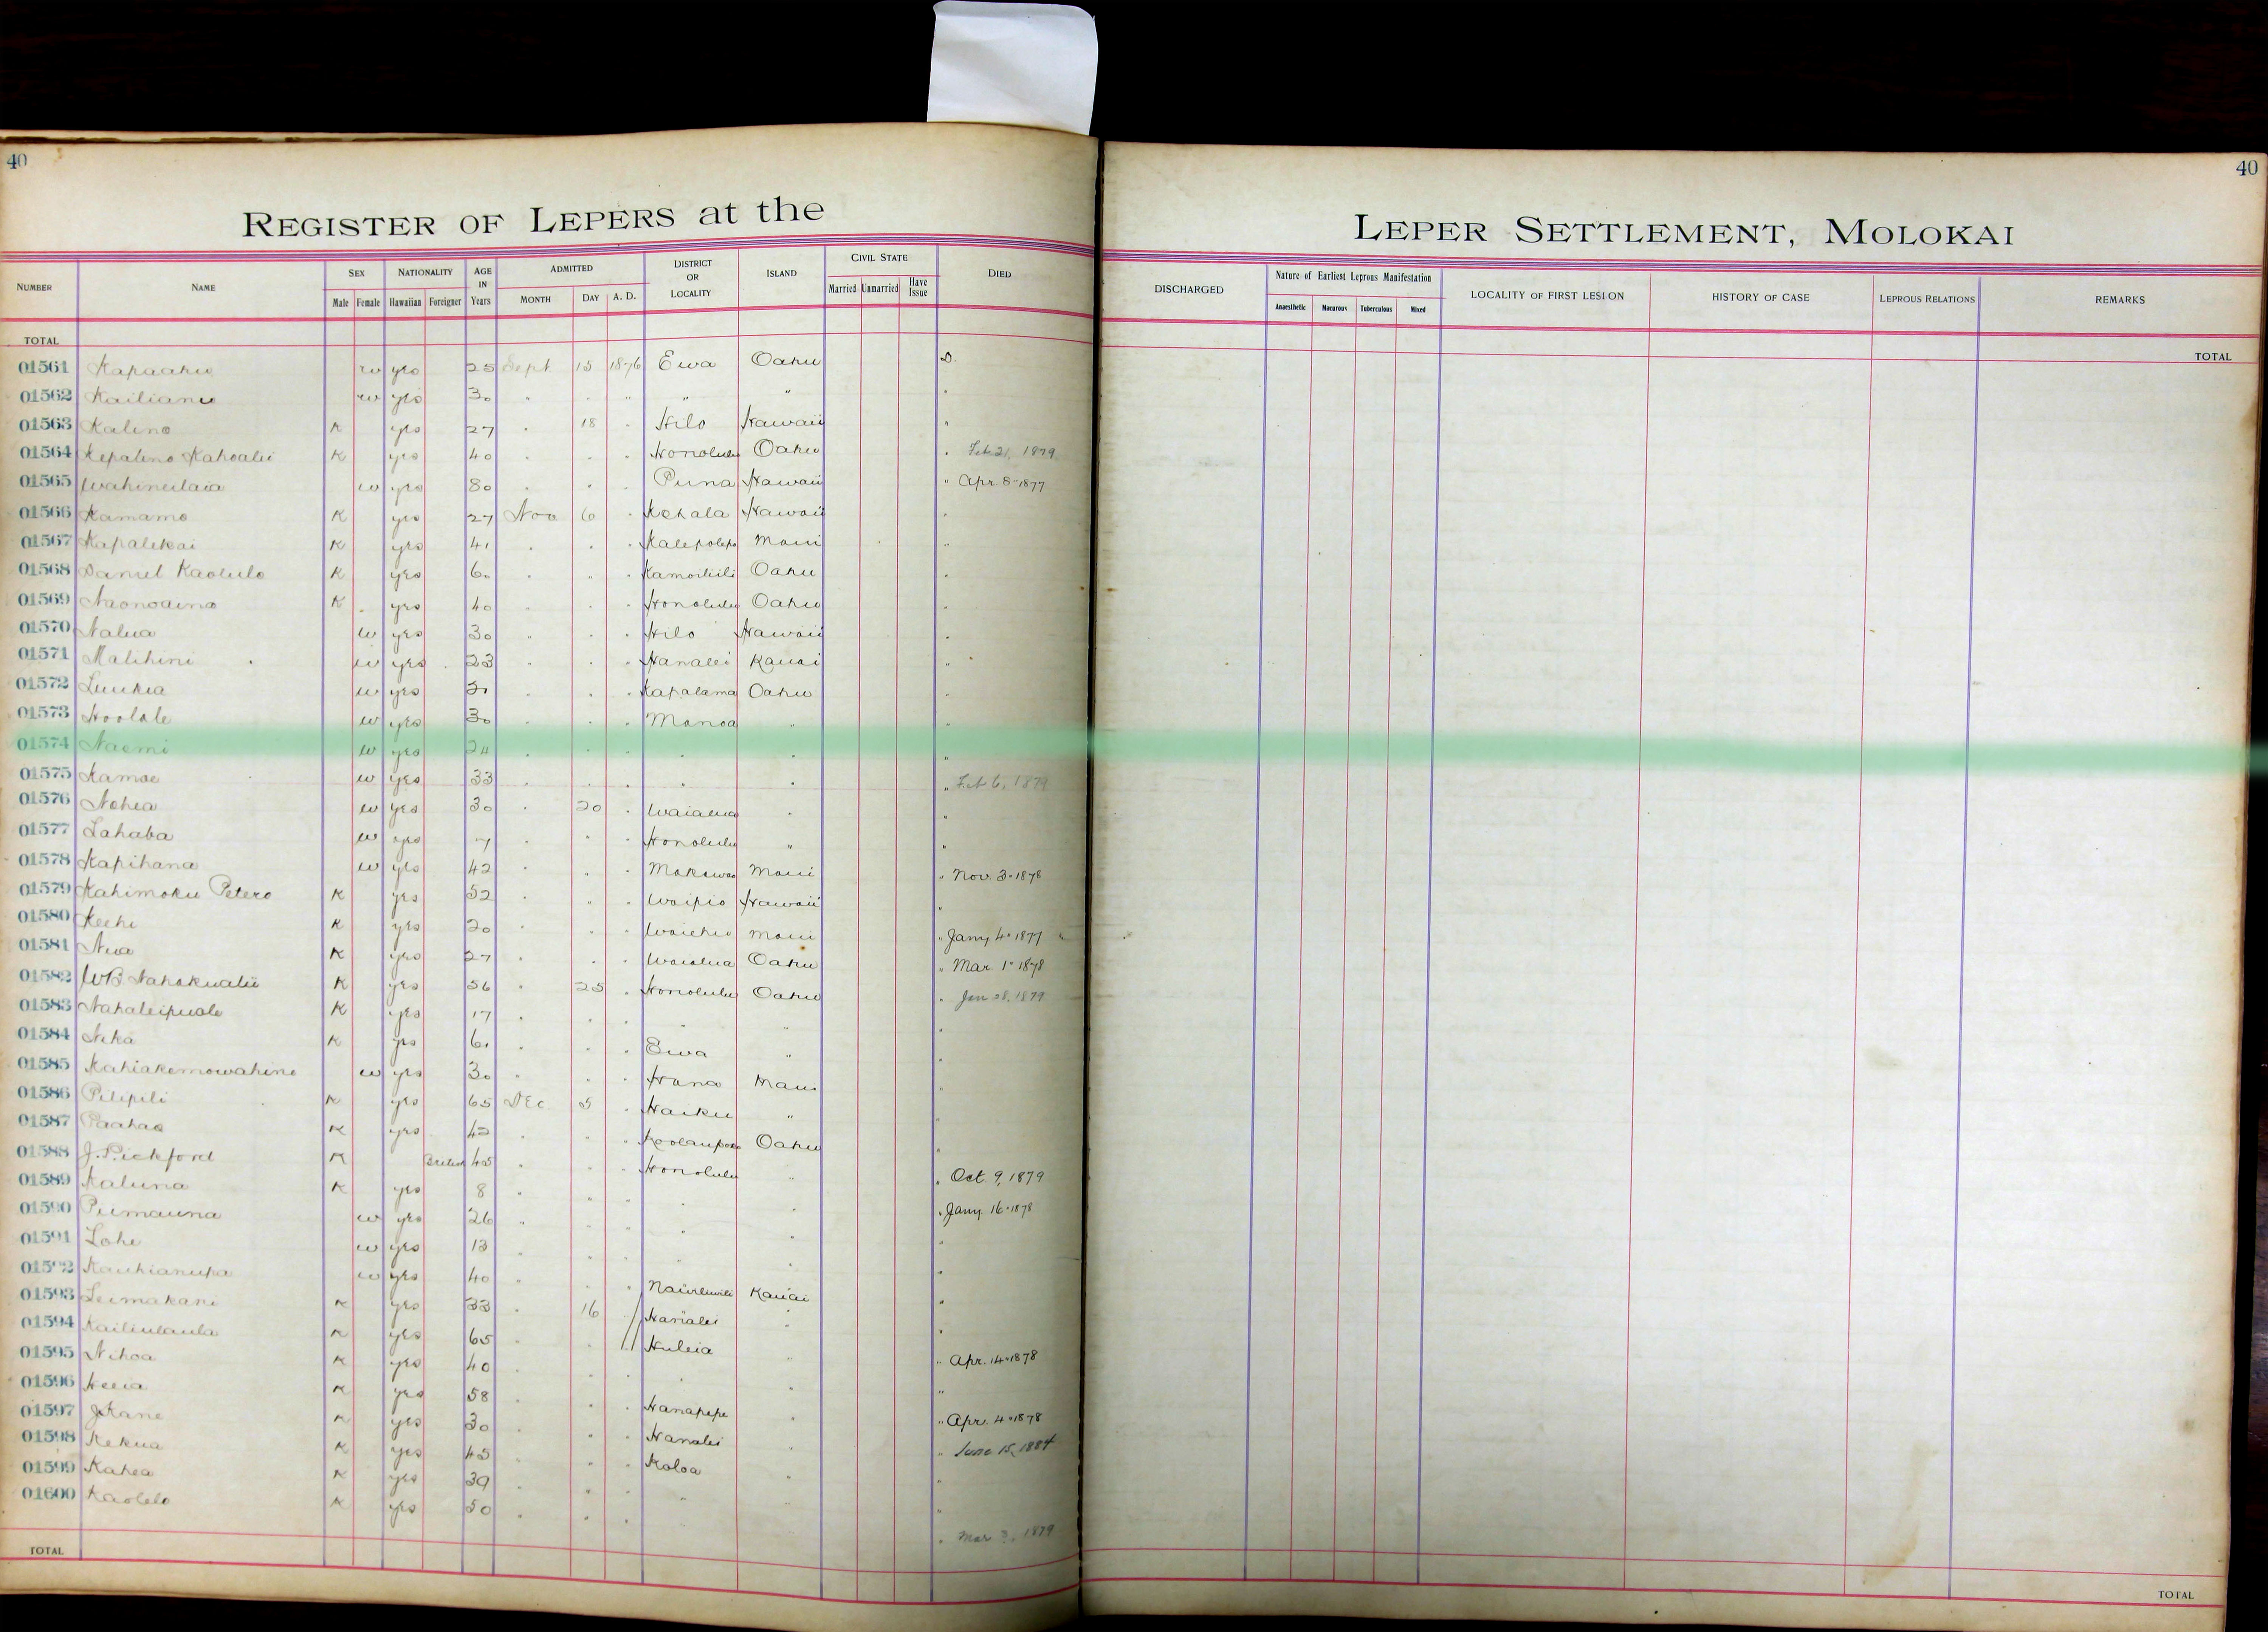 40
REGISTER OF LEPERS at the
NUMBER NAME SEX NATIONALITY AGE IN Years ADMITTED DISTRICT OR LOCALITY ISLAND CIVIL STATE DIED
Male Female Hawaiian Foreigner MONTH DAY A. D. Married Unmarried Have Issue
TOTAL
01561 Kapaahu w yes 25 Sept 15 1876 Ewa Oahu D.
01562 Kailianu w yes 30 " " " " " "
01563 Kalino K yes 27 " 18 " Hilo Hawaii "
01564 Kepalino Kahoalii K yes 40 " " " Honolulu Oahu " Feb 21, 1879
01565 Wahineilaia w yes 80 " " " Puna Hawaii " Apr. 8 - 1877
01566 Kamamo K yes 27 Nov 6 " Kohala Hawaii "
01567 Kapalekai K yes 41 " " " Kalepolepo Maui "
01568 Daniel Kaolulo K yes 60 " " " Kamoiliili Oahu "
01569 Naonoaina K yes 40 " " " Honolulu Oahu "
01570 Nalua w yes 30 " " " Hilo Hawaii "
01571 Malihini w yes 23 " " " Hanalei Kauai "
01572 Luukia w yes " " " Kapalama Oahu "
01573 Hoolale w yes 30 " " " Manoa " "
01574 Naemi w yes 24 " " " " " "
01575 Kamae w yes 33 " " " " " " Feb 6, 1879
01576 Nohea w yes 30 " 20 " Waialua " "
01577 Lahaba w yes 7 " " " Honolulu " "
01578 Kapihana w yes 42 " " " Makawao Maui " Nov. 3 - 1878
01579 Kahimoku Petero K yes 52 " " " Waipio Hawaii "
01580 Keehi K yes 20 " " " Waiehu Maui " Jany 4 - 1877 "
01581 Nua K yes 27 " " " Waialua Oahu " Mar. 1 - 1878
01582 WB Nahokualii K yes 56 " 25 " Honolulu Oahu " Jan 28, 1879
01583 Nahaleipuale K yes 17 " " " " " "
01584 Nika K yes 61 " " " Ewa " "
01585 Kahiakemowahine w yes 30 " " " Hana Maui "
01586 Pilipili K yes 65 Dec 5 " Haiku " "
01587 Paahao K yes 42 " " " Koolaupoko Oahu "
01588 J. Pickford K British 45 " " " Honolulu " " Oct. 9, 1879
01589 Kaluna K yes 8 " " " " " " Jany 16 - 1878
01590 Puimauna w yes 26 " " " " " "
01591 Lohe w yes 13 " " " " "
01592 Kauhianupa w yes 40 " " " Nawiliwili Kauai "
01593 Leimakani K yes 33 " 16 " Hanalei " "
01594 Kailiulaula K yes 65 " " " Huleia " " Apr. 14 - 1878
01595 Nihoa K yes 40 " " " " " "
01596 Heeia K yes 58 " " " Hanapepe " " Apr. 4 - 1878
01597 J Kane K yes 30 " " " Hanalei " " June 15, 1884
01598 Kekua K yes 45 " " " Koloa " "
01599 Kahea K yes 39 " " " " " "
01600 Kaolelo K yes 50 " " " " Mar 3, 1879
TOTAL
40
LEPER SETTLEMENT, MOLOKAI
DISCHARGED Nature of Earliest Leprous Manifestation LOCALITY OF FIRST LESION HISTORY OF CASE LEPROUS RELATIONS REMARKS
Anaesthetic Macurous Tuberculous Mixed
TOTAL
TOTAL